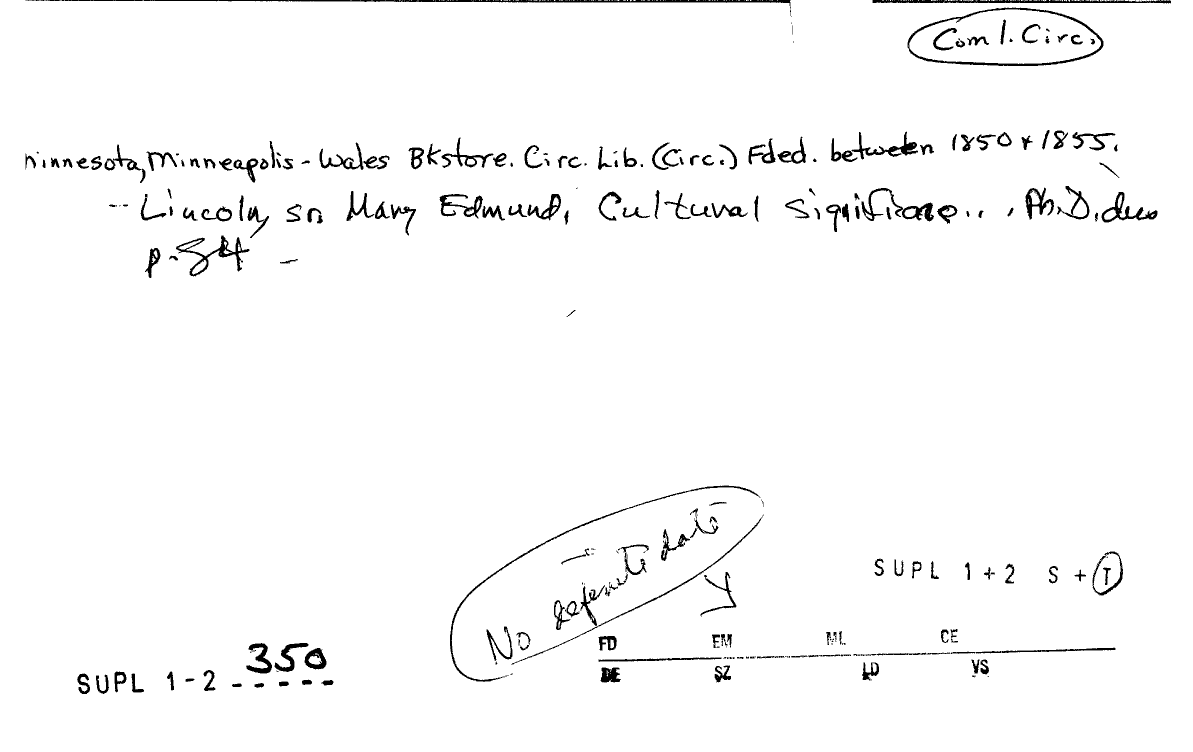 Com'l. Circ.
Minnesota, Minneapolis - Wales Bkstore. Circ. Lib. (Circ.) Fded. between 1850 + 1855.
- Lincoln, Sr. Mary Edmund, Cultural Significance..., Ph.D. diss
p. 84 -
No definite date
SUPL 1+2 S + T
FD EM ML CE
SUPL 1-2 350
DE SZ LD VS